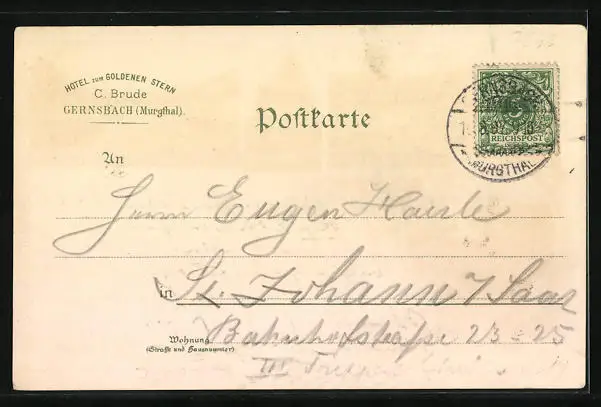 HOTEL ZUM GOLDENEN STERN
C. Brude
GERNSBACH (Murgthal).
Postkarte
5
REICHSPOST
MURGTHAL
An
Herrn Eugen Haerle
in St. Johann / Saar
Wohnung
(Straße und Hausnummer)
Bahnhofstraße 23-25
III